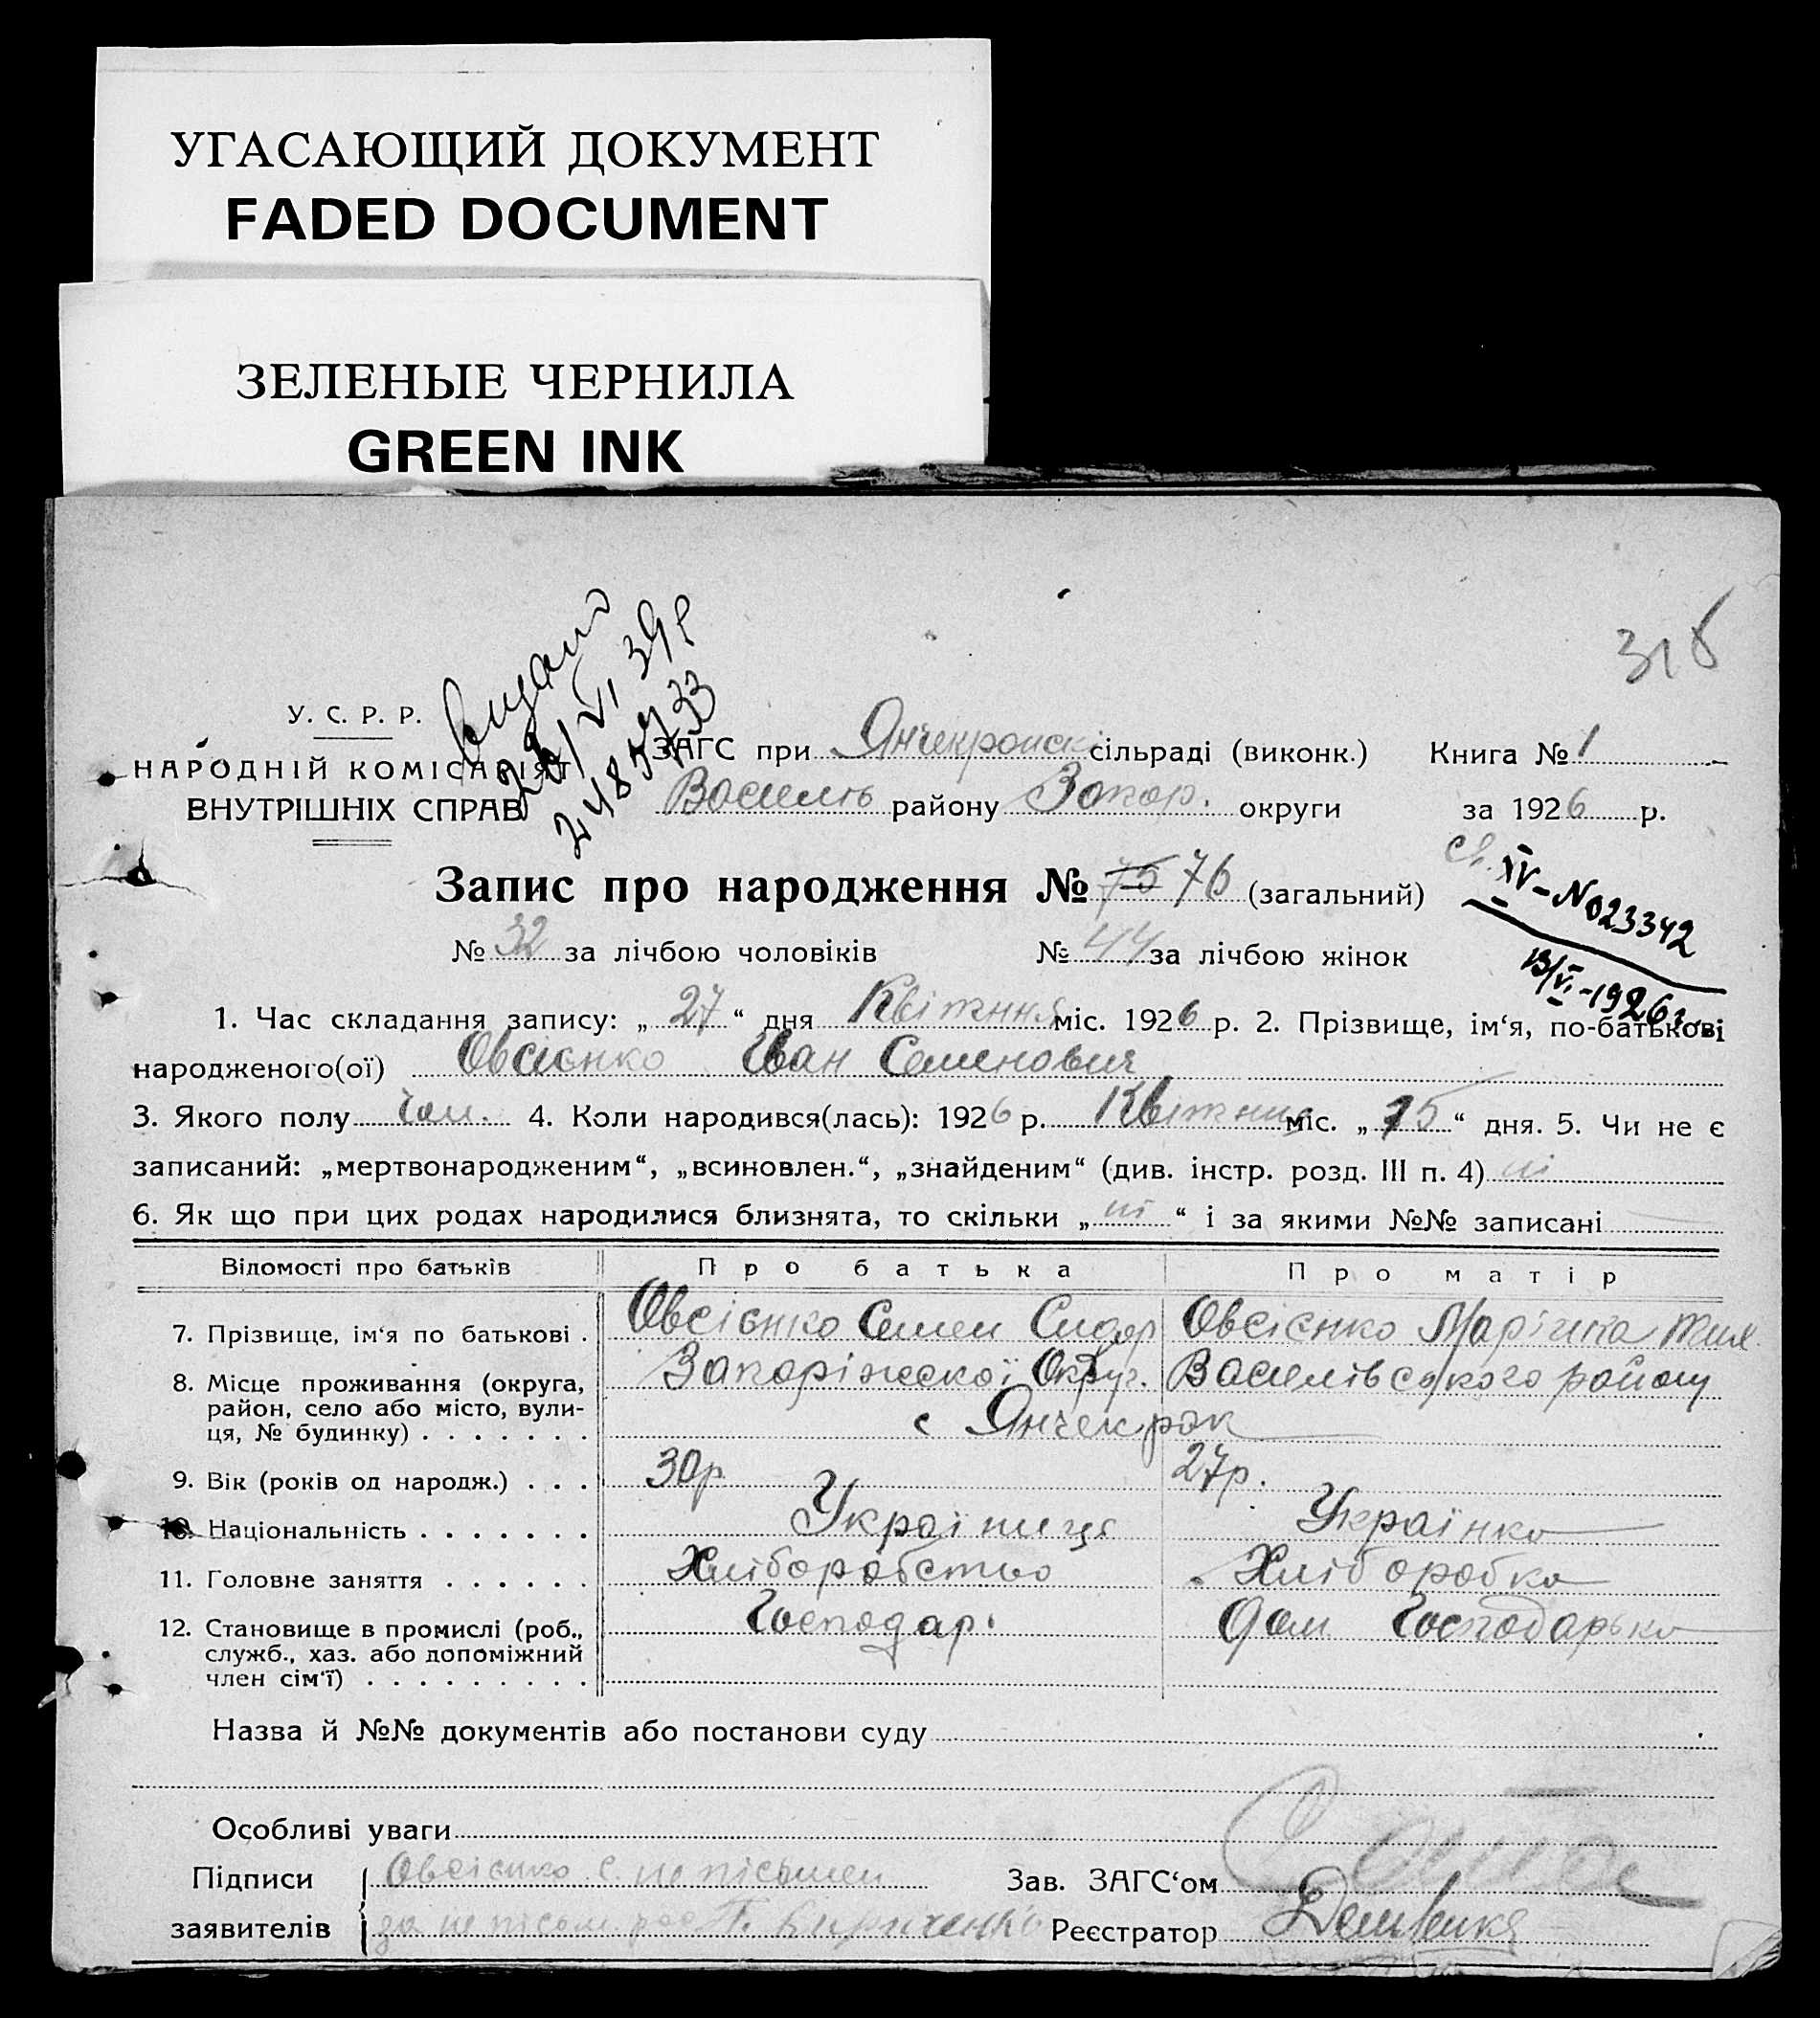 УГАСАЮЩИЙ ДОКУМЕНТ
FADED DOCUMENT
ЗЕЛЕНЫЕ ЧЕРНИЛА
GREEN INK
315
У. С. Р. Р.
НАРОДНІЙ КОМІСАРІЯТ
ВНУТРІШНІХ СПРАВ
Видано
VI 39р
ЗАГС при Янчекропскі сільраді (виконк.) Книга № 1
Василів району Запор. округи за 1926 р.
Запис про народження № 75 76 (загальний)
XV-N023342
13/VI-1926г.
№ 32 за лічбою чоловіків № 44 за лічбою жінок
1. Час складання запису: „ 27 “ дня Квітння міс. 1926 р. 2. Прізвище, ім‘я, по-батькові
народженого(ої) Овсієнко Іван Семенович
3. Якого полу чол. 4. Коли народився(лась): 1926 р. Квітння міс. „ 15 “ дня. 5. Чи не є
записаний: „мертвонародженим“, „всиновлен.“, „знайденим“ (див. інстр. розд. III п. 4) ні
6. Як що при цих родах народилися близнята, то скільки „ ні “ і за якими №№ записані
Відомості про батьків Про батька Про матір
7. Прізвище, ім‘я по батькові . Овсієнко Семен Сидор Овсієнко Марішка
8. Місце проживання (округа, Запоріжской Округ. Василівського району
район, село або місто, вули- с Янчекрак
ця, № будинку) . . . . . . .
9. Вік (років од народж.) . . . 30р 27р.
10. Національність . . . . . . . Українця Українка
11. Головне заняття . . . . . . Хліборобство Хліборобка
12. Становище в промислі (роб., Господар Дом Господарька
служб., хаз. або допоміжний
член сім‘ї) . . . . . . . . .
Назва й №№ документів або постанови суду
Особливі уваги
Підписи Овсієнко С. не пісьмен Зав. ЗАГС‘ом
заявителів за не пісьм. Кириченко Реєстратор